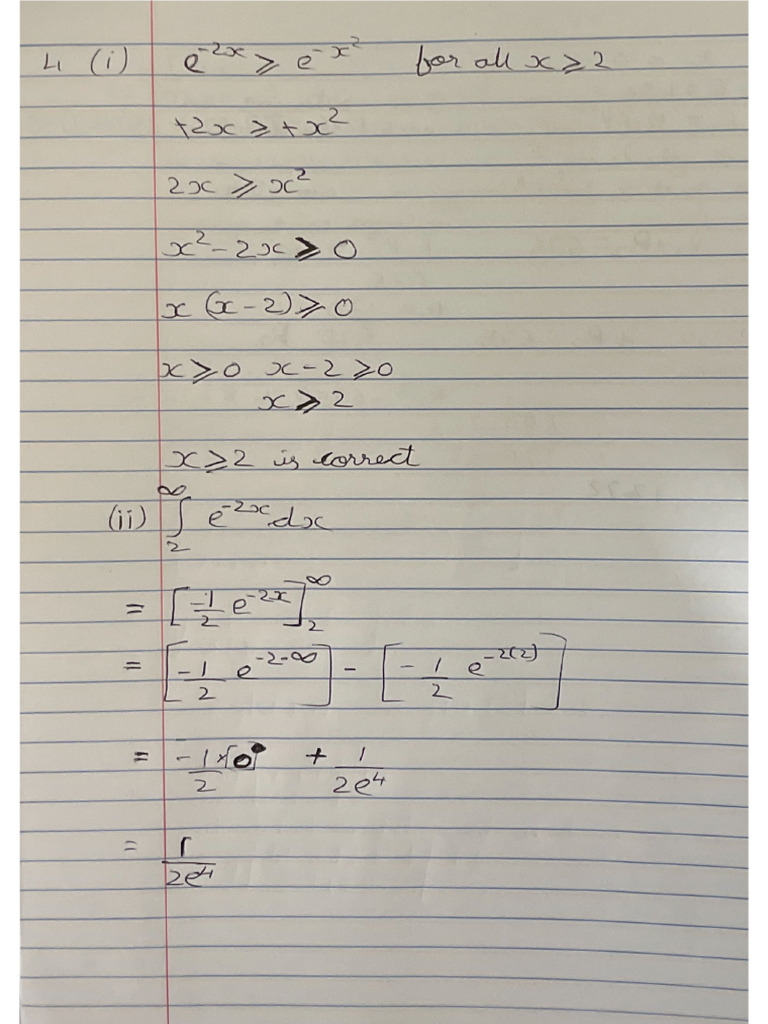 4 (i) e^{-2x} ⩾ e^{-x^2} for all x ⩾ 2
+2x ⩾ +x^2
2x ⩾ x^2
x^2 - 2x ⩾ 0
x (x - 2) ⩾ 0
x ⩾ 0 x - 2 ⩾ 0
x ⩾ 2
x ⩾ 2 is correct
(ii) ∫_2^∞ e^{-2x} dx
= [-1/2 e^{-2x}]_2^∞
= [-1/2 e^{-2-∞}] - [-1/2 e^{-2(2)}]
= -1/2 × [0] + 1/2e^4
= 1/2e^4